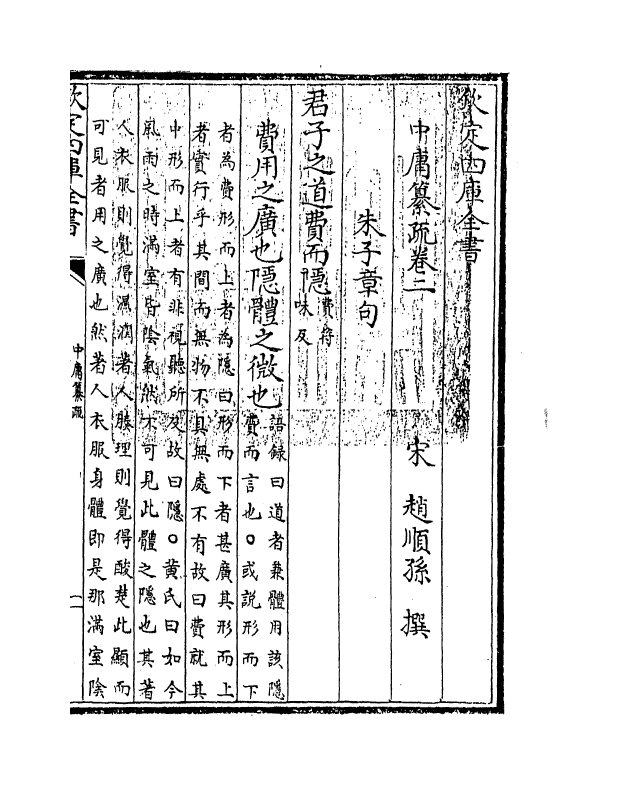 欽定四庫全書
中庸纂疏卷二
宋 趙順孫 撰
朱子章句
君子之道費而隱費符味反
費用之廣也隱體之微也語録曰道者兼體用該隱
費而言也○或說形而下
者為費形而上者為隱曰形而下者甚廣其形而上
者實行乎其間而無物不具無處不有故曰費就其
中形而上者有非視聽所及故曰隱○黄氏曰如今
風雨之時滿室皆陰氣然不可見此體之隱也其著
人衣服則覺得濕潤著人膝理則覺得酸楚此顯而
可見者用之廣也然著人衣服身體即是那滿室陰
欽定四庫全書
中庸纂疏
一